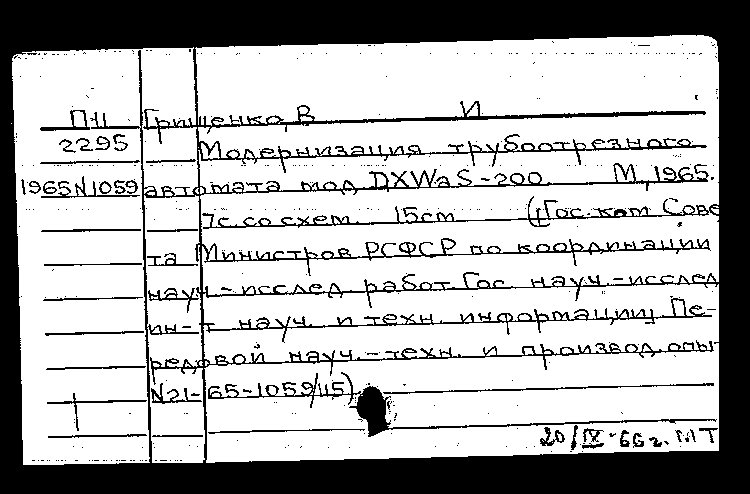 П-II Грищенко, В И
2295 Модернизация трубоотрезного
1965 N1059 автомата мод DXWaS-200. М., 1965.
7с. со схем. 15см ([Гос. ком Сове
та Министров РСФСР по координации
науч-исслед работ. Гос науч.-исслед
ин-т науч. и техн. информации] Пе-
редовой науч.-техн. и производ. опыт
N21-65-1059/15)
20/IX-66г. МТ